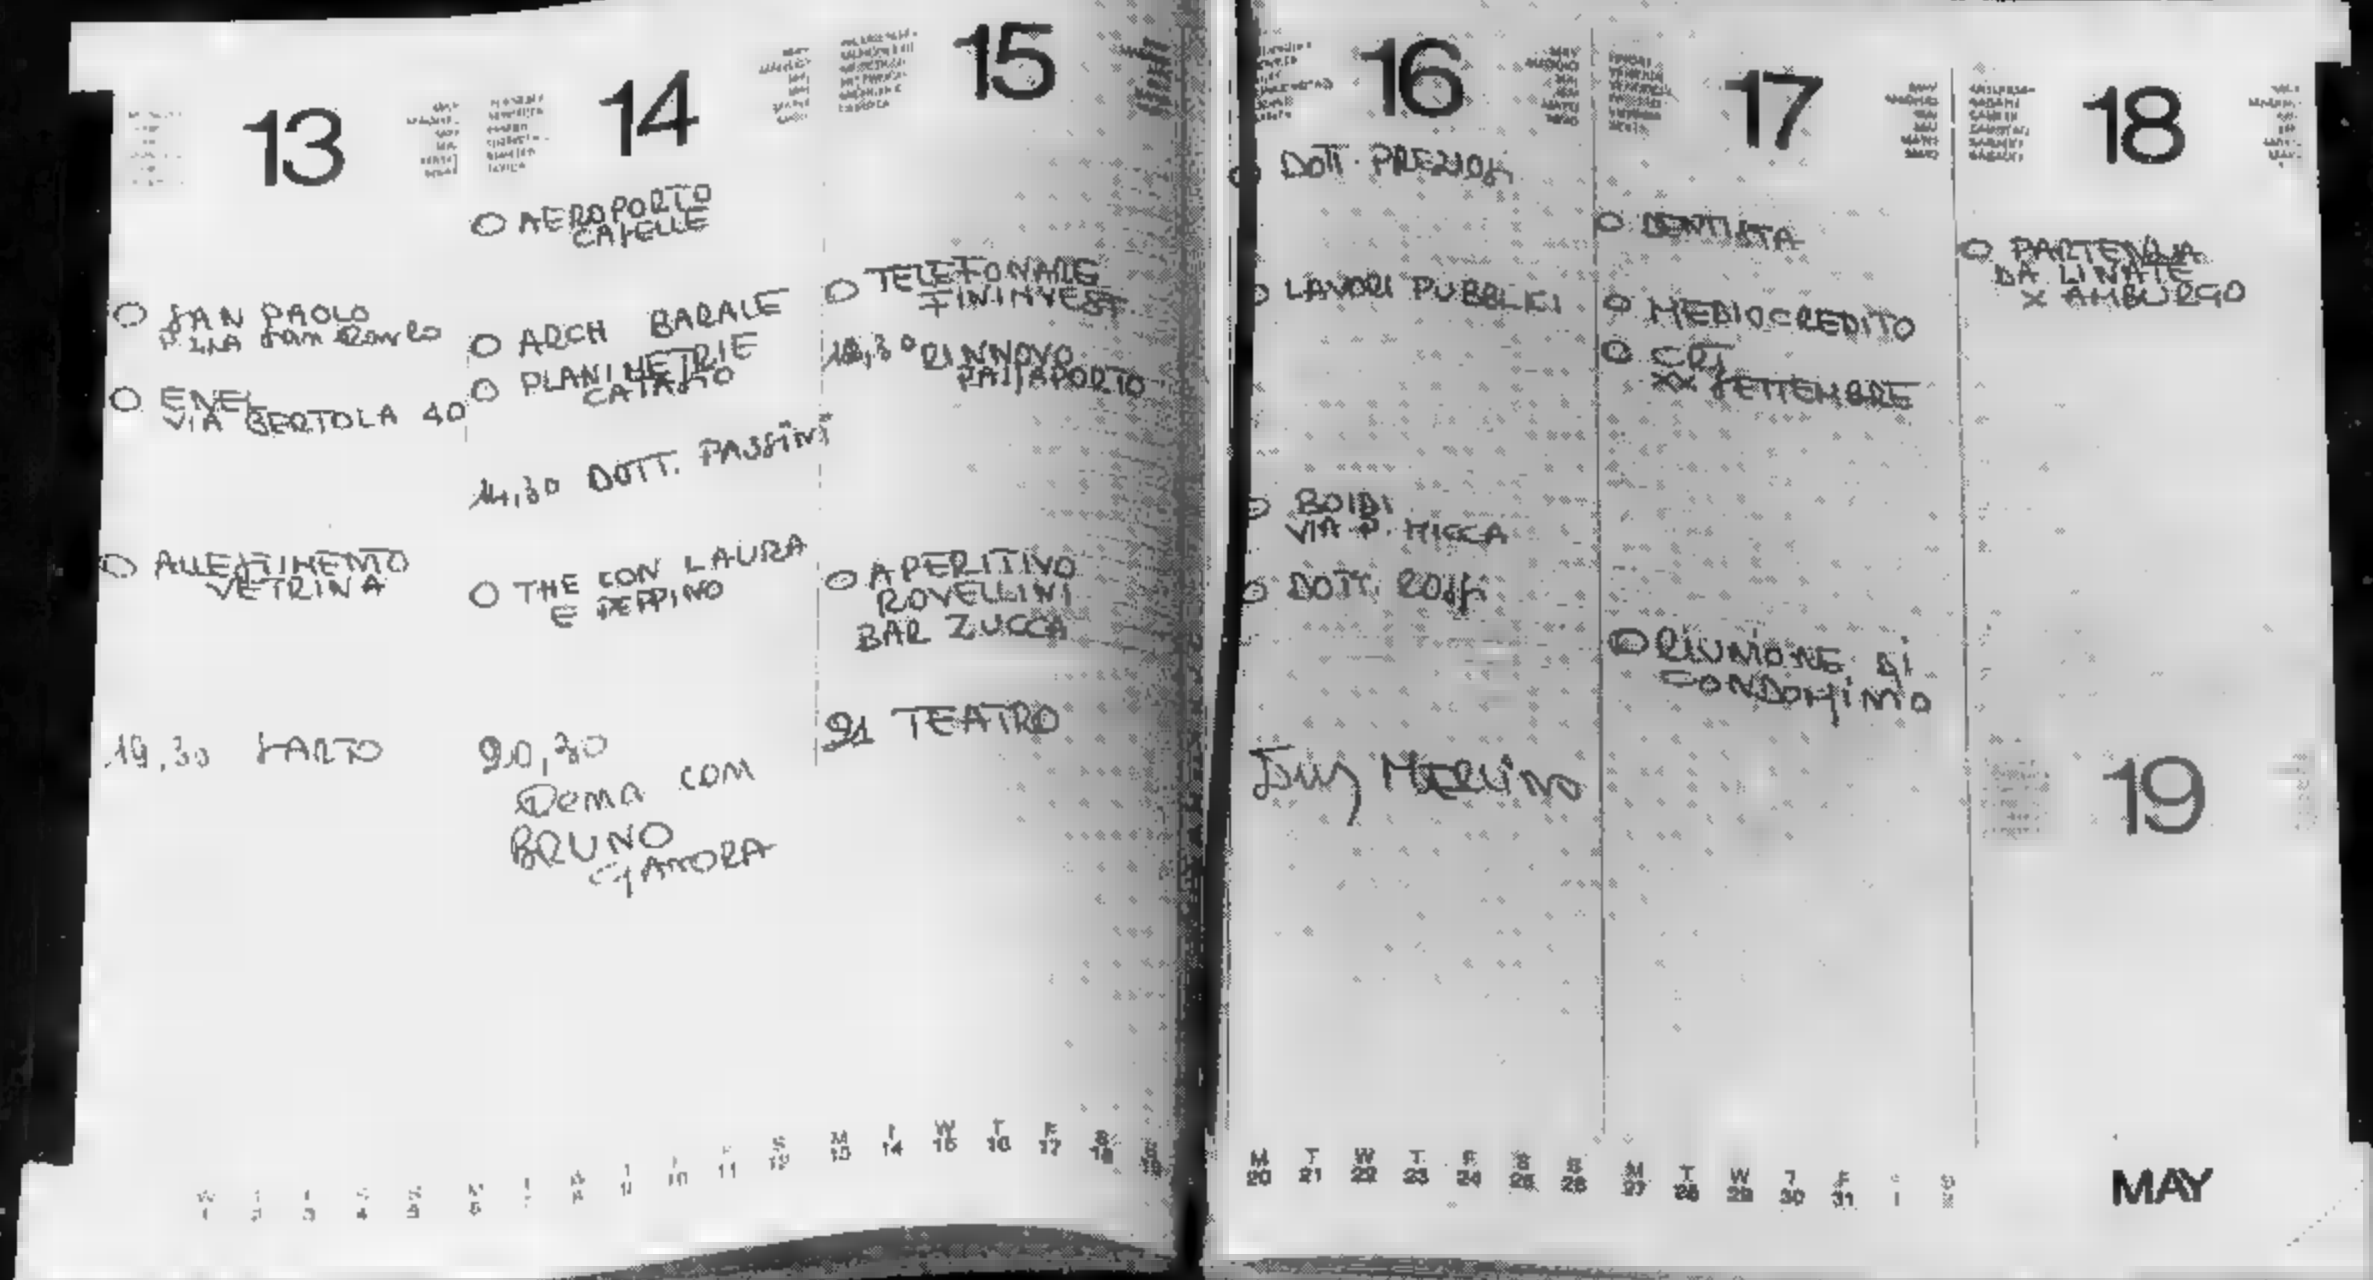 13
SAN PAOLO
ENEL
VIA BERTOLA 40
ALLESTIMENTO
VETRINA
19,30 SARTO
14
AEROPORTO
CASELLE
ARCH BARALE
PLANIMETRIE
CATASTO
14,30 DOTT. PASSINI
THE CON LAURA
E PEPPINO
20,30
CENA CON
BRUNO
15
TELEFONARE
FININVEST
RINNOVO
PASSAPORTO
APERITIVO
ROVELLINI
BAR ZUCCA
21 TEATRO
16
DOTT. PREZIOSI
LAVORI PUBBLICI
BOIDI
VIA P. MICCA
DOTT. ROSSI
17
DENTISTA
MEDIOCREDITO
CRT
XX SETTEMBRE
RIUNIONE DI
CONDOMINIO
18
PARTENZA
DA LINATE
X AMBURGO
19
M T W T F S S
13 14 15 16 17 18 19
M T W T F S S M T W T F
20 21 22 23 24 25 26 27 28 29 30 31
MAY